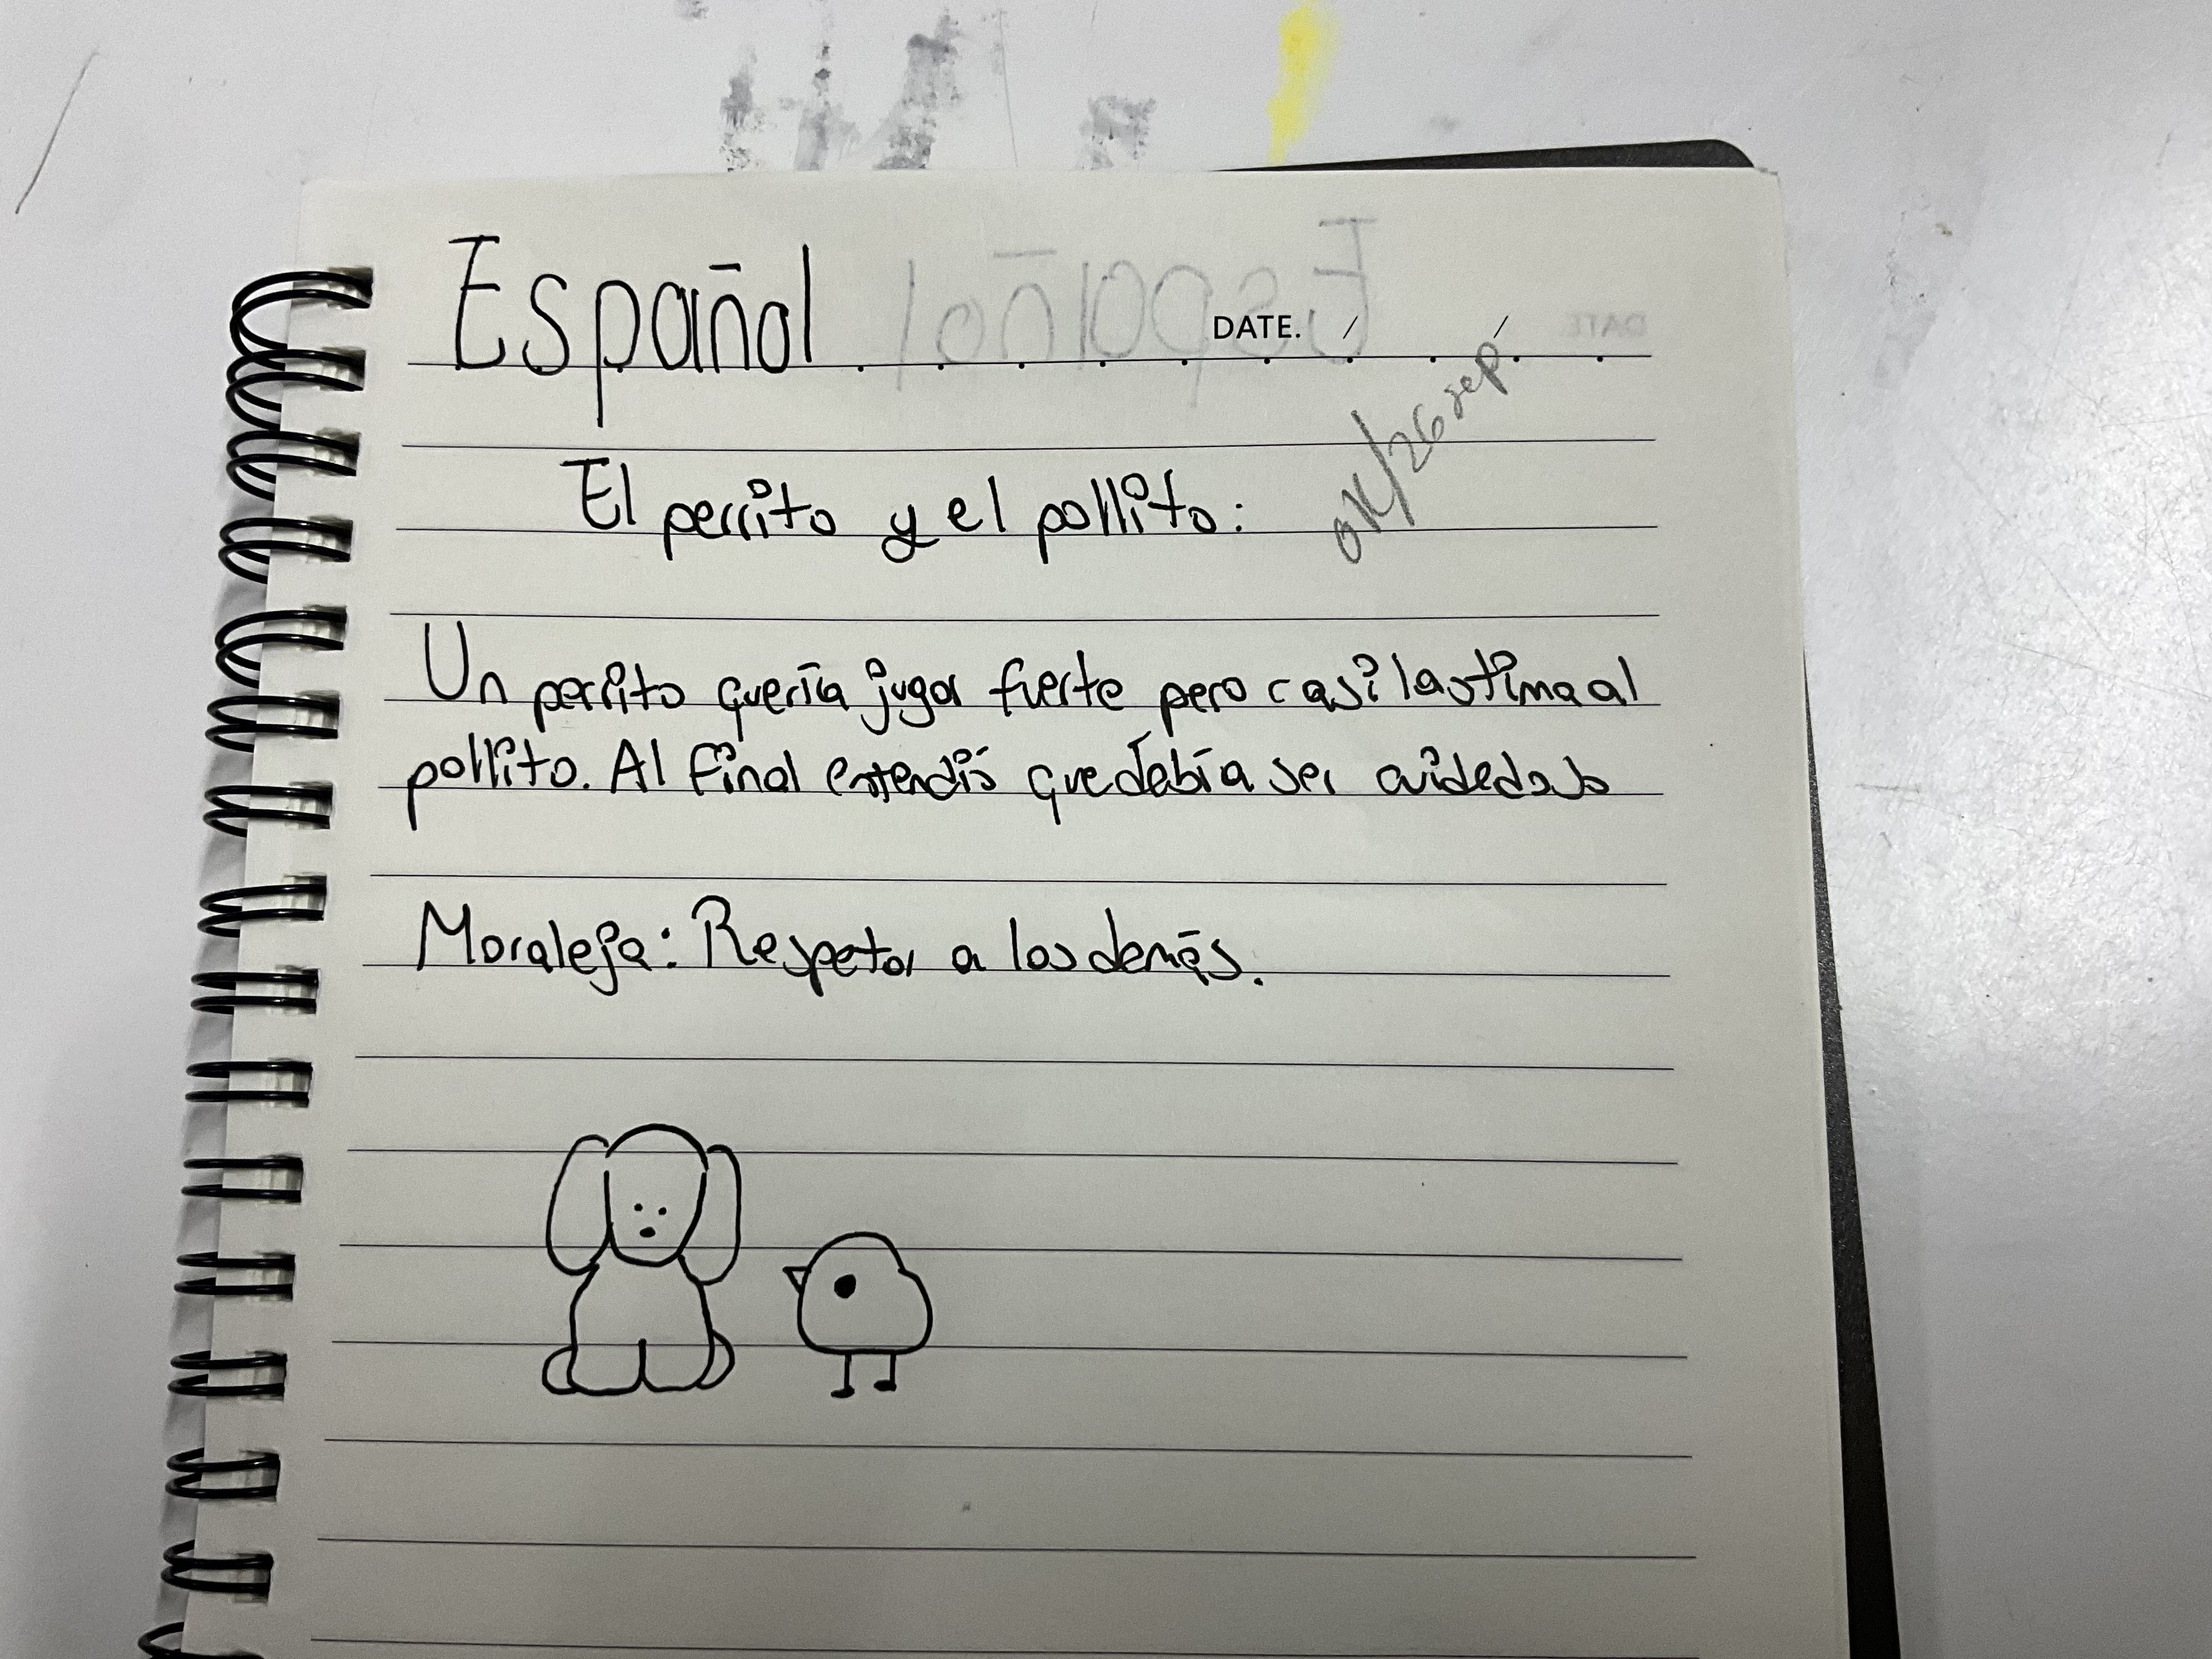 Español
DATE. / /
ok/26 sep
El perrito y el pollito:
Un perrito quería jugar fuerte pero casi lastima al
pollito. Al final entendió que debía ser cuidedoso
Moraleja: Respetar a los demás.